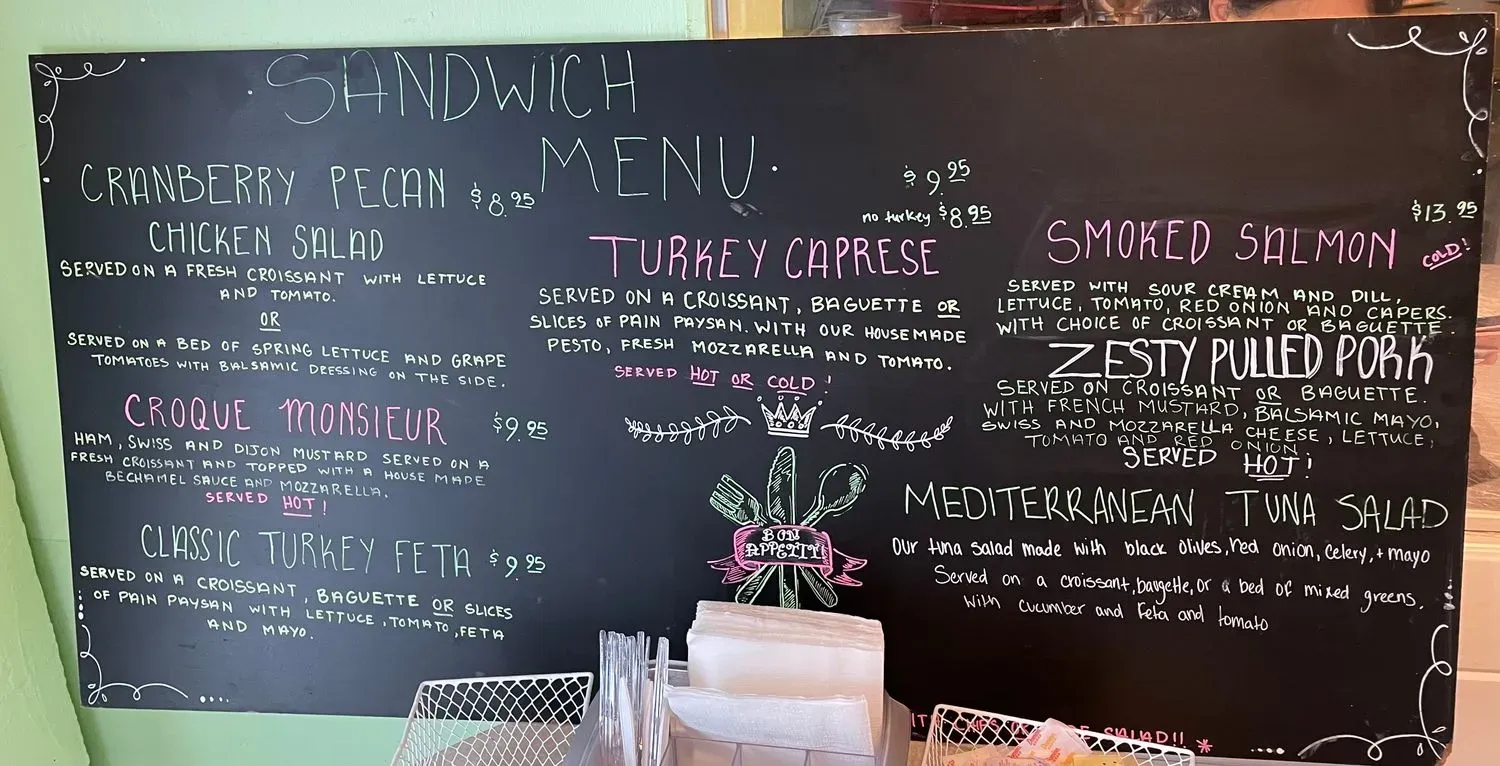 SANDWICH
MENU
CRANBERRY PECAN $8.95
CHICKEN SALAD
SERVED ON A FRESH CROISSANT WITH LETTUCE
AND TOMATO.
OR
SERVED ON A BED OF SPRING LETTUCE AND GRAPE
TOMATOES WITH BALSAMIC DRESSING ON THE SIDE.
CROQUE MONSIEUR $9.95
HAM, SWISS AND DIJON MUSTARD SERVED ON A
FRESH CROISSANT AND TOPPED WITH A HOUSE MADE
BECHAMEL SAUCE AND MOZZARELLA.
SERVED HOT!
CLASSIC TURKEY FETA $9.95
SERVED ON A CROISSANT, BAGUETTE OR SLICES
OF PAIN PAYSAN WITH LETTUCE, TOMATO, FETA
AND MAYO.
$9.95
no turkey $8.95
TURKEY CAPRESE
SERVED ON A CROISSANT, BAGUETTE OR
SLICES OF PAIN PAYSAN. WITH OUR HOUSEMADE
PESTO, FRESH MOZZARELLA AND TOMATO.
SERVED HOT OR COLD!
BON
APPETIT!
$13.95
SMOKED SALMON COLD!
SERVED WITH SOUR CREAM AND DILL,
LETTUCE, TOMATO, RED ONION AND CAPERS.
WITH CHOICE OF CROISSANT OR BAGUETTE.
ZESTY PULLED PORK
SERVED ON CROISSANT OR BAGUETTE.
WITH FRENCH MUSTARD, BALSAMIC MAYO,
SWISS AND MOZZARELLA CHEESE, LETTUCE,
TOMATO AND RED ONION
SERVED HOT!
MEDITERRANEAN TUNA SALAD
Our tuna salad made with black olives, red onion, celery, + mayo
Served on a croissant, baugette, or a bed of mixed greens.
with cucumber and Feta and tomato
CHIPS OR SALAD!! *